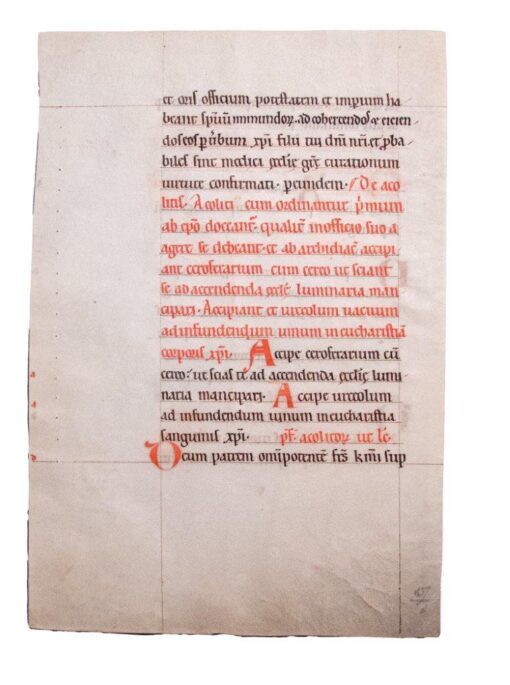 et eius officium potestatem et imp̄ium ha
beant sp̄uū inmundoꝝ. ad cohercendos ⁊ eicien
dos eos p uerbum xp̄i filii tui dn̄i nr̄i. et p̱ba
biles sint medici ęcclīę grę curationum
uirtute confirmati. p eundem. De aco
litis. Acoliti cum ordinantur p̄mum
ab ep̄o doceantr̄. qualit̄ in officio suo a
agere se debeant. et ab archidiac̄ accipi
ant ceroferarium cum cereo ut sciant
se ad accendenda ęcclę luminaria man
cipari. Accipiant et urceolum uacuum
ad infundendum uinum in eucharistiā
corporis xp̄i. Accipe ceroferarium cū
cereo. ut scias te ad accendenda ęcclīę lumi
naria mancipari. Accipe urceolum
ad infundendum uinum in eucharistia
sanguinis xp̄i. pf̄ acolitoꝝ
Deum patrem om̄ipotentē fr̄s k̄mi sup